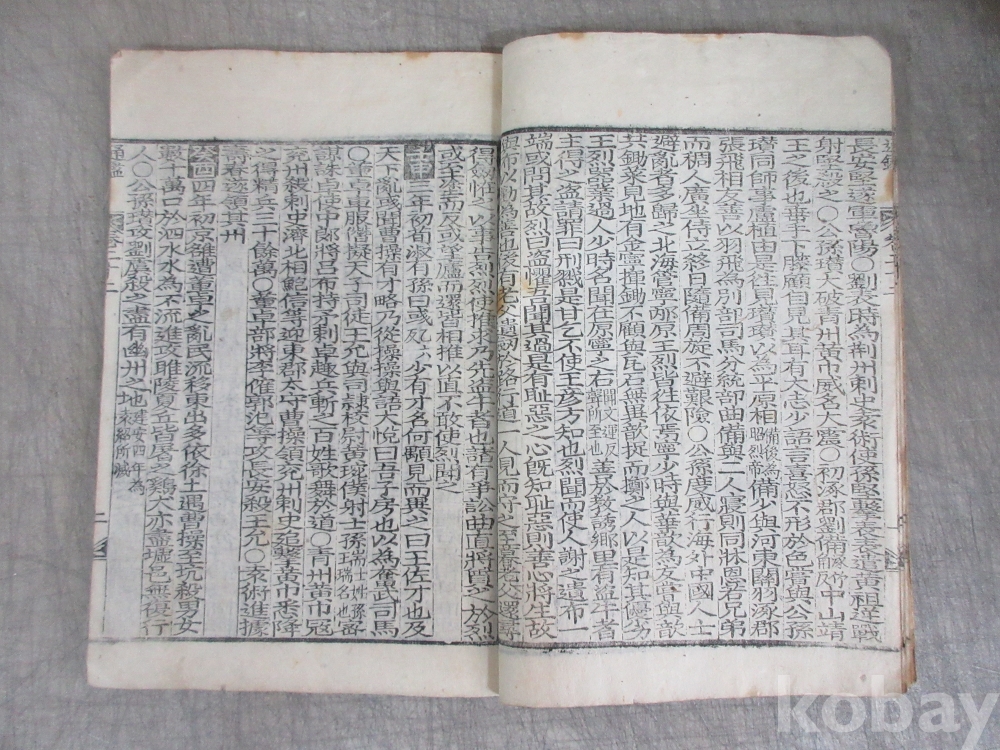 長安堅遂軍魯陽○劉表時爲荊州刺史袁術使孫堅擊表表遣黃祖逆戰
射堅殺之○公孫瓚大破青州黃巾威名大震○初涿郡劉備中山靖
王之後也垂手下膝顧自見其耳有大志少語言喜怒不形於色嘗與公孫
瓚同師事盧植由是往見瓚瓚以爲平原相備後爲昭烈帝備少與河東關羽涿郡
張飛相友善以羽飛爲別部司馬分統部曲備與二人寢則同牀恩若兄弟
而稠人廣坐侍立終日隨備周旋不避艱險○公孫度威行海外中國人士
避亂者多歸之北海管寧邴原王烈皆往依焉寧少時與華歆爲友嘗與歆
共鋤菜見地有金寧揮鋤不顧與瓦石無異歆捉而擲之人以是知其優劣
王烈器業過人少時名聞在原寧之右善於敎誘鄉里有盜牛者
主得之盜請罪曰刑戮是甘乞不使王彥方知也烈聞而使人謝之遺布一
端或問其故烈曰盜懼吾聞其過是有恥惡之心旣知恥惡則善心將生故
與布以勸爲善也後有老父遺劒於路行道一人見而守之至暮老父還尋
得劒怪之以事告烈烈使推求乃先盜牛者也諸有爭訟曲直將質之於烈
或至塗而反或望廬而還皆相推以直不敢使烈聞之
壬申三年初荀淑有孫曰彧少有才名何顒見而異之曰王佐才也及
天下亂彧聞曹操有才略乃從操操與語大悅曰吾子房也以爲奮武司馬
○董卓車服僭擬天子司徒王允與司隸校尉黃琬僕射士孫瑞密
謀誅卓使中郞將呂布持矛刺卓趣兵斬之百姓歌舞於道○青州黃巾寇
兗州殺刺史濟北相鮑信等迎東郡太守曹操領兗州刺史追擊黃巾悉降
之得精兵三十餘萬○董卓部將李傕郭汜等攻長安殺王允○袁術進據
壽春遂領其州
癸酉四年初京雒遭董卓之亂民流移東出多依徐土遇曹操至坑殺男女
數十萬口於泗水水爲不流進攻睢陵夏丘皆屠之鷄犬亦盡墟邑無復行
人○公孫瓚攻劉虞殺之盡有幽州之地建安四年爲袁紹所滅
通鑑